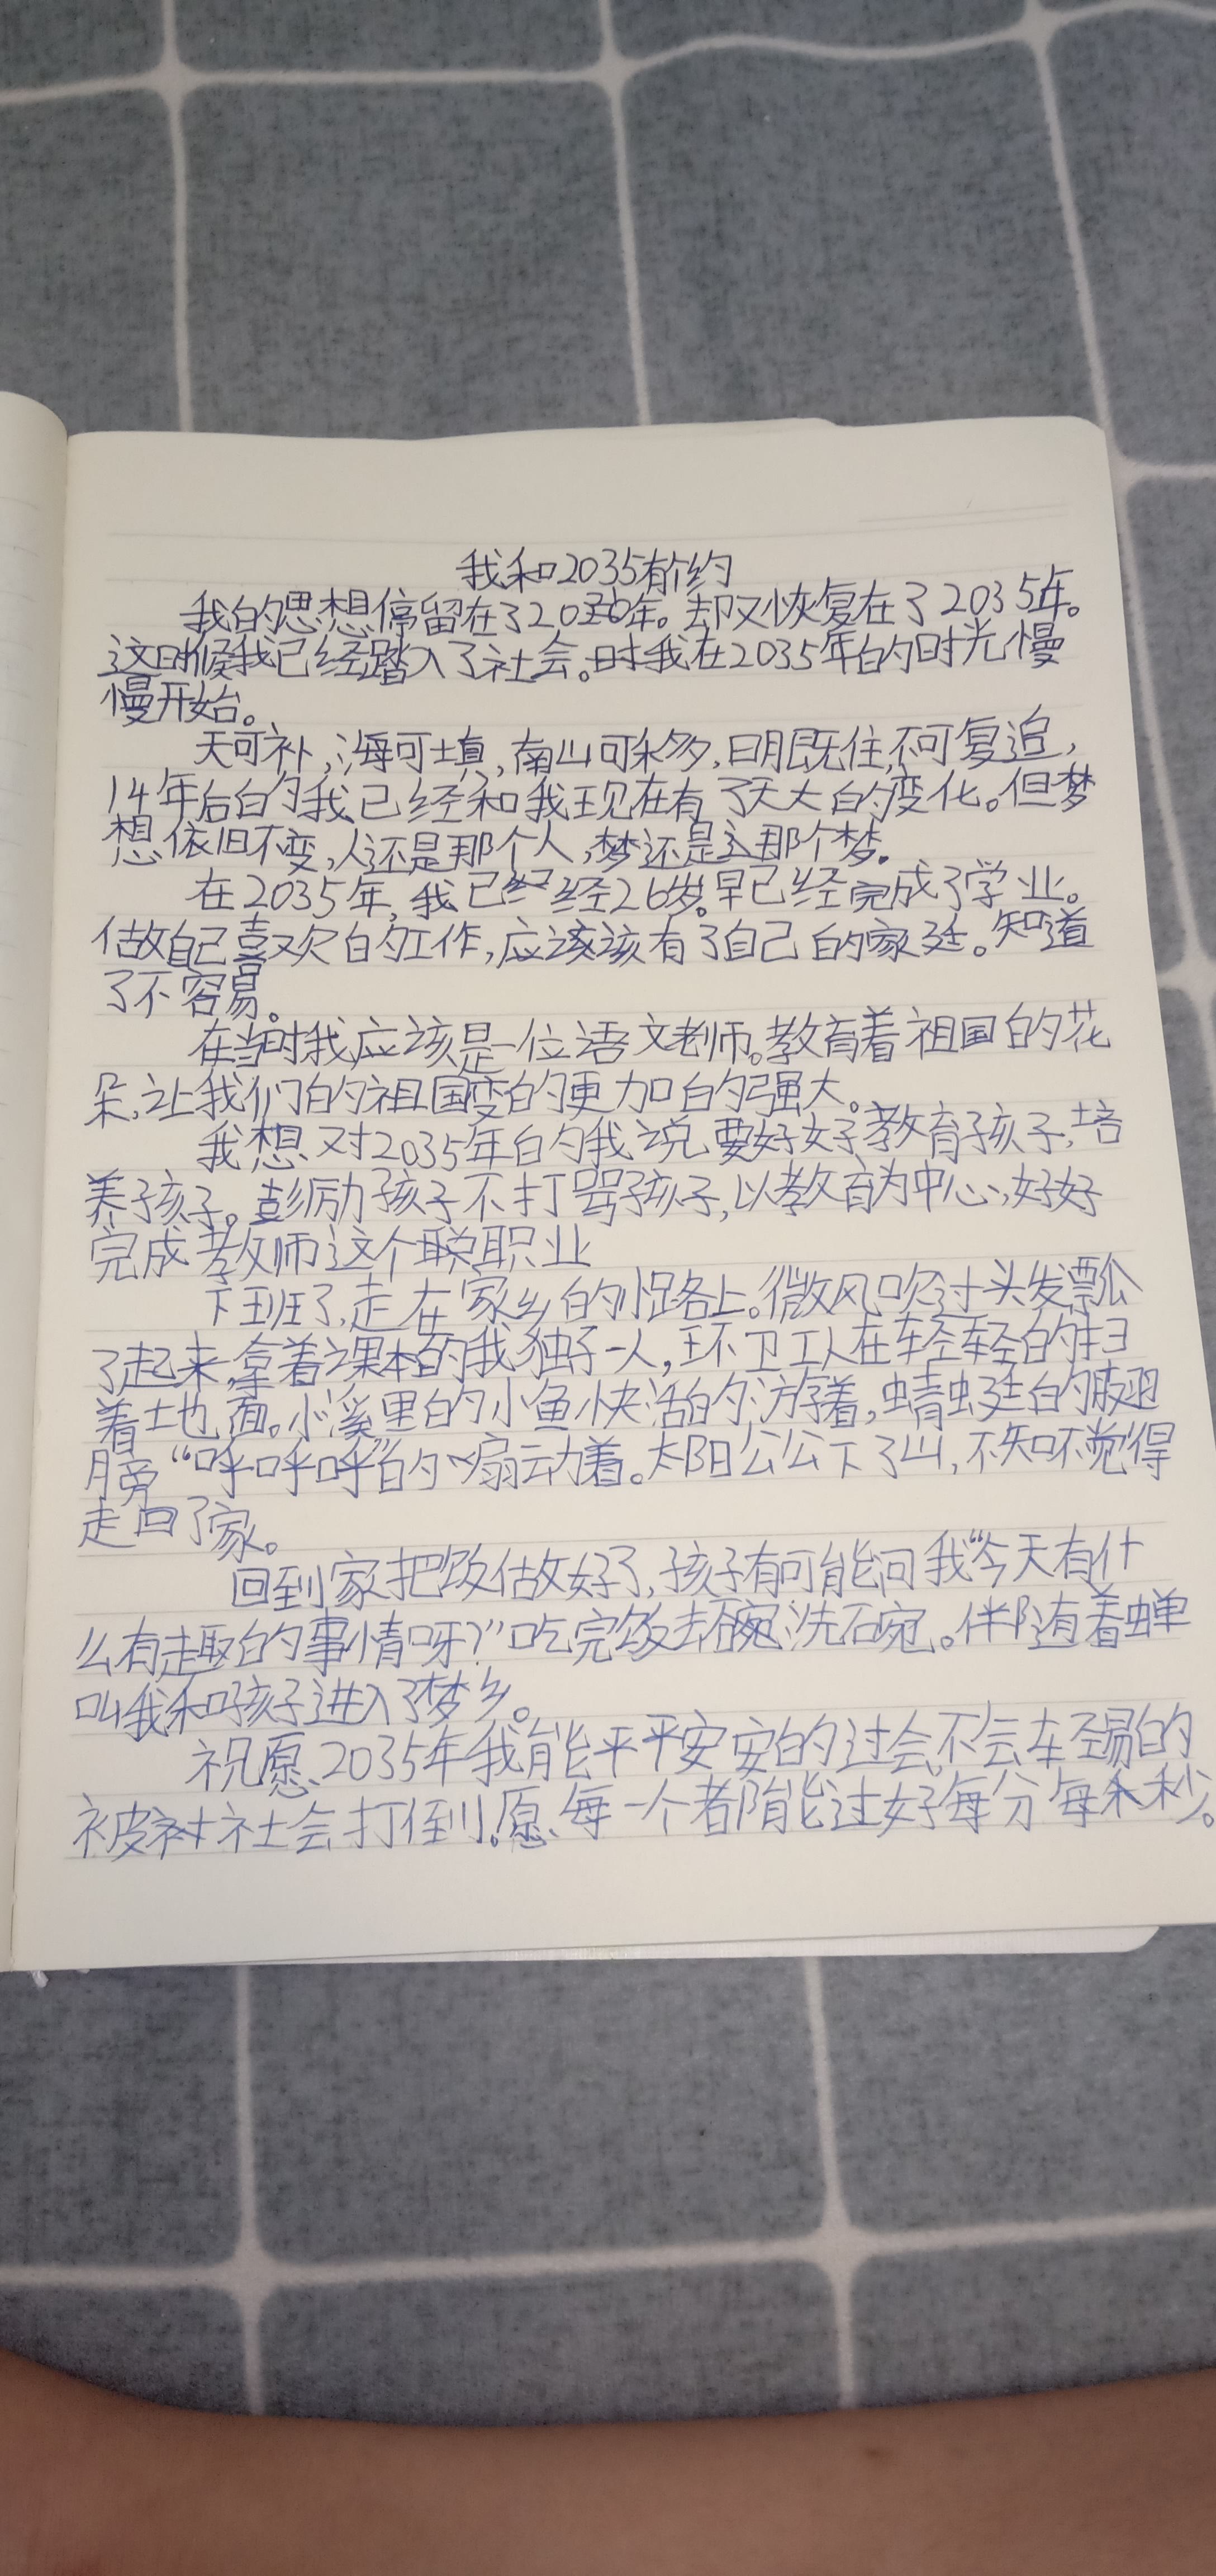 我和2035有个约
我的思想停留在了2036年。却又恢复在了2035年。
这时候我已经踏入了社会。时我在2035年的时光慢
慢开始。
天可补,海可填,南山可移,日月既往,不可复追,
14年后的我已经和我现在有了天大的变化。但梦
想依旧不变,人还是那个人,梦还是那个梦。
在2035年,我已经26岁。早已经完成了学业。
做自己喜欢的工作,应该该有了自己的家廷。知道
了不容易。
在当时我应该是一位语文老师。教育着祖国的花
朵,让我们的祖国变的更加的强大。
我想对2035年的我说要好好教育孩子,培
养孩子。彭励孩子不打骂孩子,以教育为中心,好好
完成教师这个职业
下班了,走在家乡的小路上。微风吹过头发飘
了起来,拿着课本的我独子一人,环卫工人在轻轻的扫
着土地面。小溪里的小鱼快活的游着,蜻蜓的翅
膀“呼呼呼”的扇动着。太阳公公下了山,不知不觉得
走回了家。
回到家把饭做好了,孩子有可能问我“今天有什
么有趣的事情呀?”吃完饭去洗碗。伴随着蝉
叫我和孩子进入了梦乡。
祝愿2035年我能平平安安的过会,不会在轻易的
被社会打倒。愿每一个都能过好每分每秒。